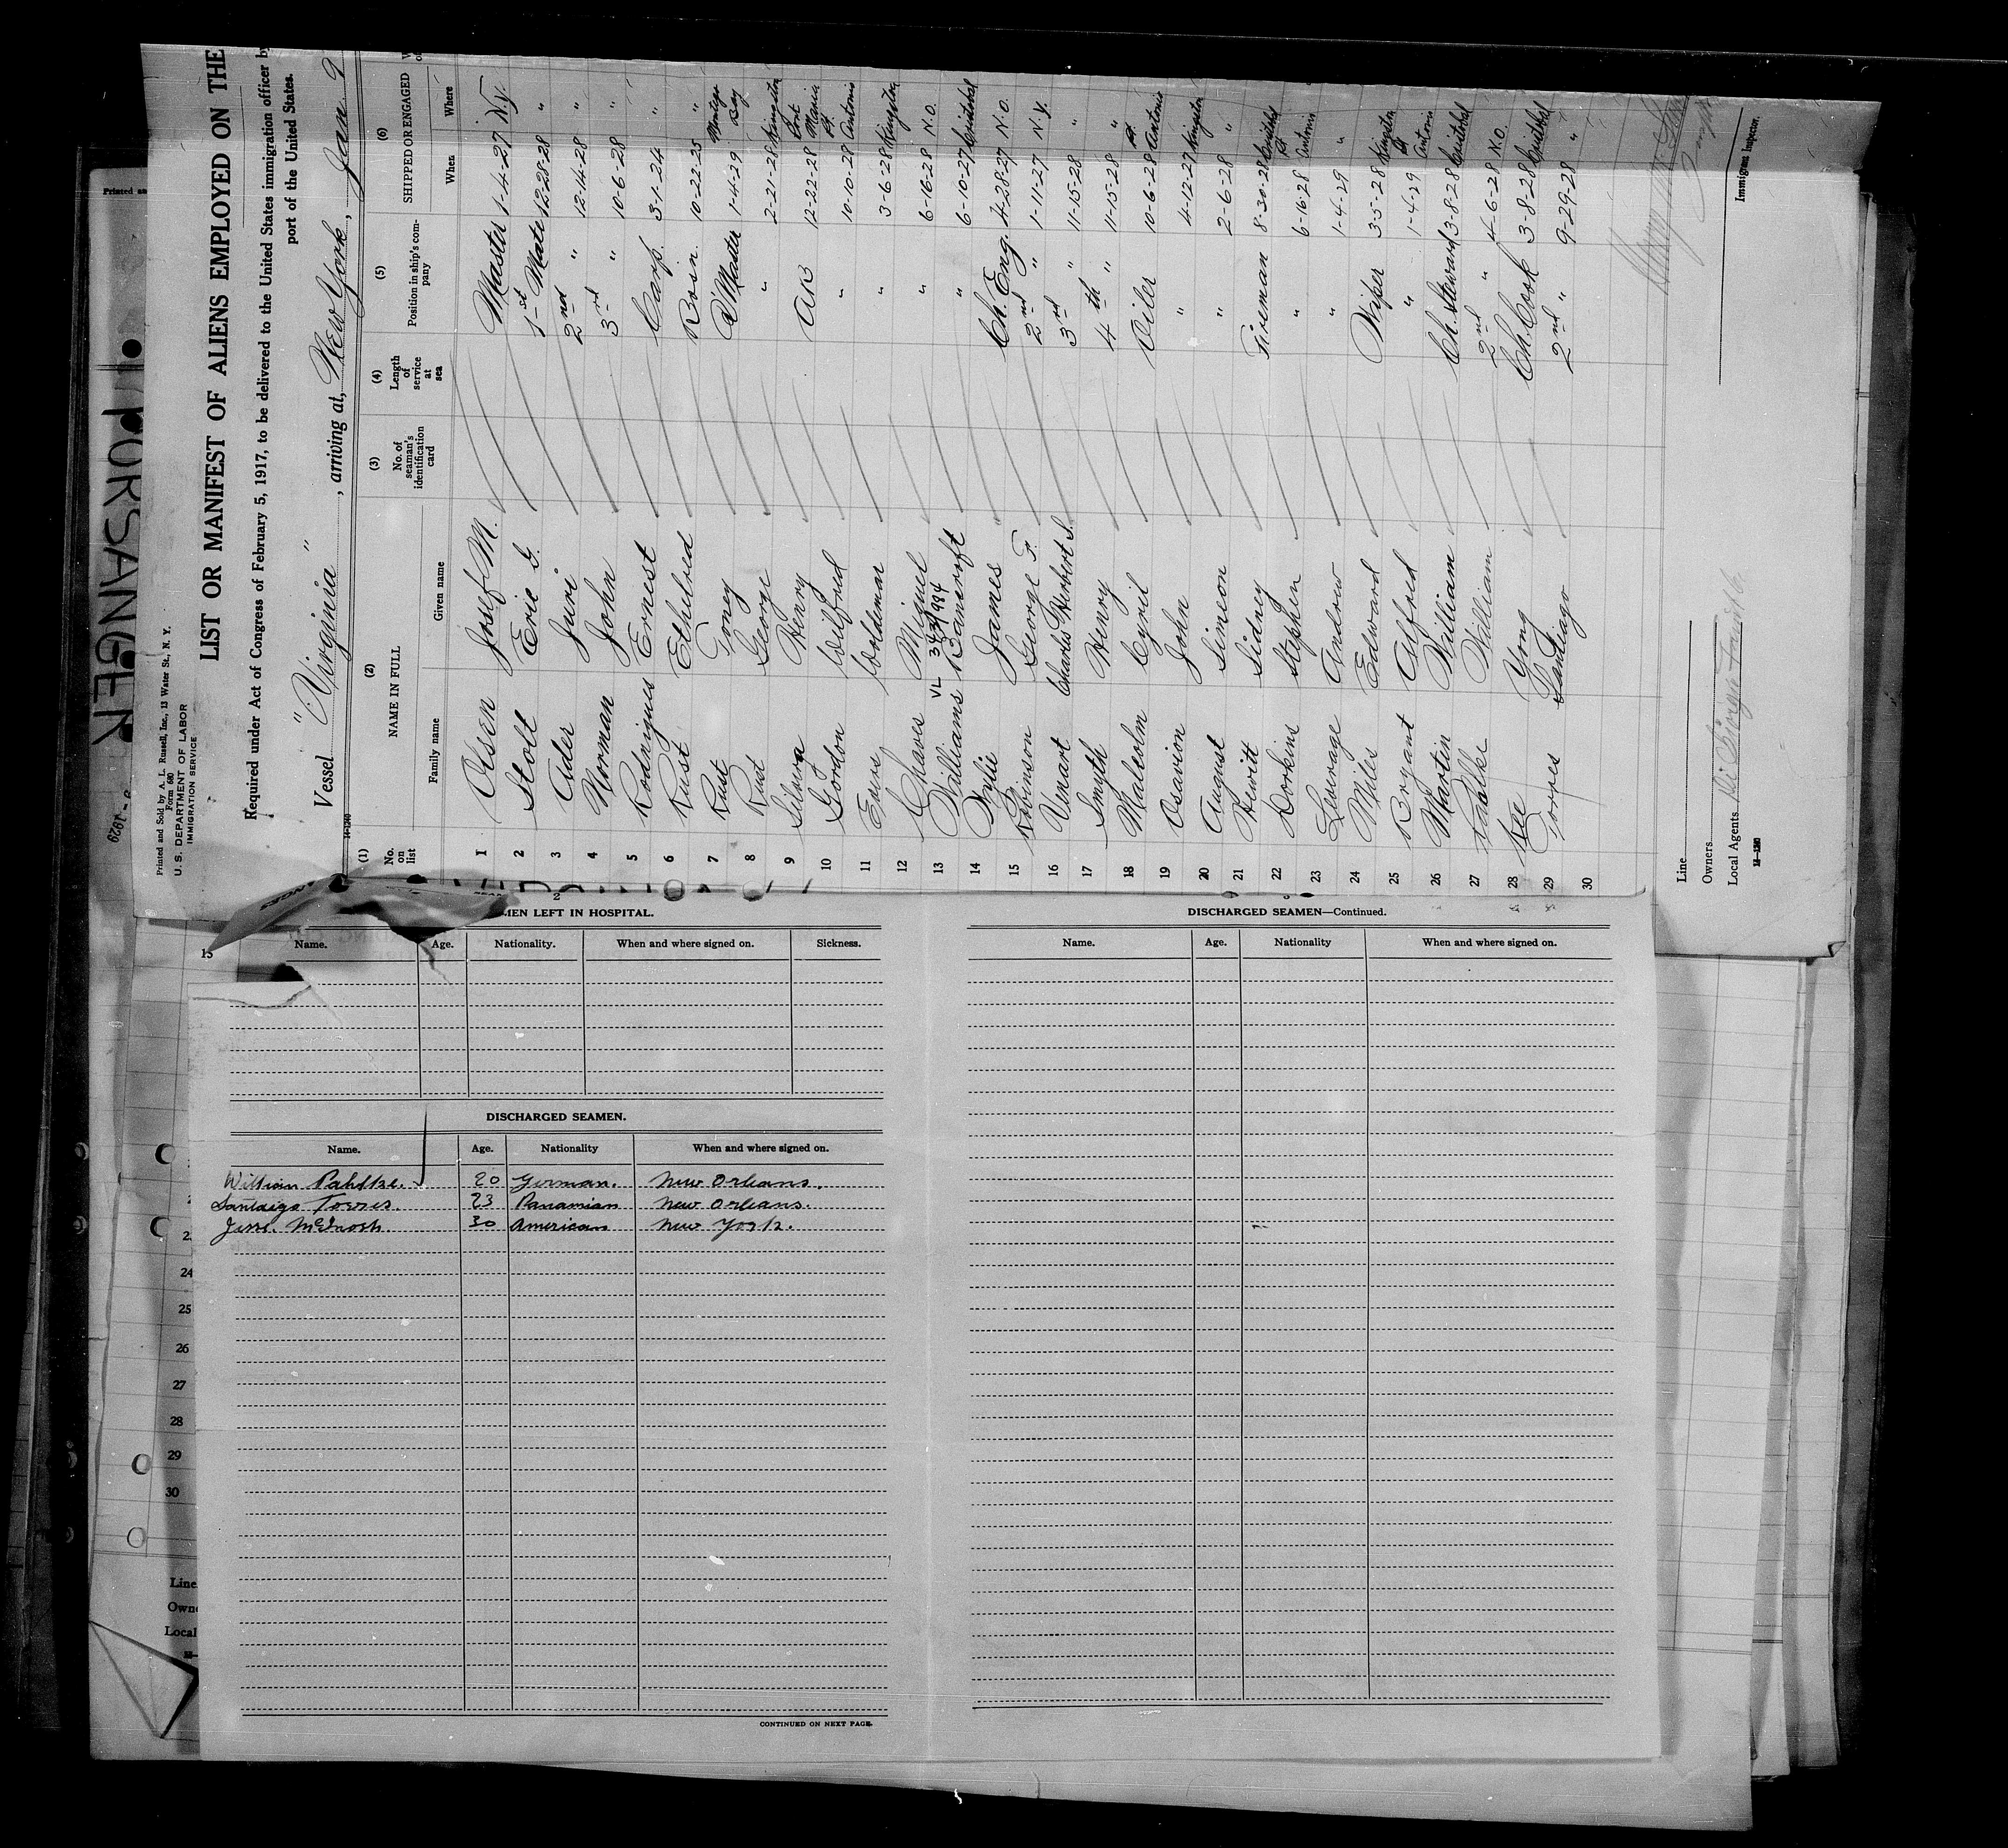 PORSANGER
Printed and Sold by A. L. Russell, Inc., 13 Water St., N. Y.
Form 680
U. S. DEPARTMENT OF LABOR
IMMIGRATION SERVICE
LIST OR MANIFEST OF ALIENS EMPLOYED ON THE
Required under Act of Congress of February 5, 1917, to be delivered to the United States immigration officer by
port of the United States.
Vessel "Virginia", arriving at, New York, Jan 9
(1) (2) (3) (4) (5) (6)
No. on list NAME IN FULL No. of seaman's identification card Length of service at sea Position in ship's company SHIPPED OR ENGAGED
Family name Given name When Where
1 Olsen Josef M. Master 1-4-27 N.Y.
2 Stolt Eric G. 1st Mate 12-28-28 "
3 Ader Juri 2nd " 12-14-28 "
4 Norman John 3rd " 10-6-28 "
5 Rodrigues Ernest Carp. 3-1-24 "
6 Rust Ethelred Bosn. 10-22-25 "
7 Rust Toney Q'Master 1-4-29 Montego Bay
8 Rust George " 2-21-28 Kingston
9 Silvera Henry AB 12-22-28 Port Maria
10 Gordon Wilfred " 10-10-28 Pt. Antonio
11 Woldman " 3-6-28 Kingston
12 Chaves Miguel " 6-16-28 N.O.
VL 343/984
13 Williams Bancroft " 6-10-27 Cristobal
14 Wylie James Ch. Eng. 4-28-27 N.O.
15 Robinson George F. 2nd " 1-11-27 N.Y.
16 Venart Charles Herbert S. 3rd " 11-15-28 "
17 Smyth Henry 4th " 11-15-28 "
18 Malcolm Cyril Oiler 10-6-28 Pt Antonio
19 Osavion John " 4-12-27 Kingston
20 August Simeon " 2-6-28 "
21 Hewitt Sidney Fireman 8-30-28 Cristobal
22 Dorkins Stephen " 6-16-28 Pt Antonio
23 Leverage Andrew " 1-4-29 "
24 Miles Edward Wiper 3-5-28 Kingston
25 Bryant Alfred " 1-4-29 Pt Antonio
26 Martin William Ch. Steward 3-8-28 Cristobal
27 William 2nd " 4-6-28 N.O.
28 Yong Ch. Cook 3-8-28 Cristobal
29 Torres Santiago 2nd " 9-29-28 "
30
Immigrant Inspector.
Line
Owners
Local Agents Di Giorgio Fruit Co.
MEN LEFT IN HOSPITAL.
Name. Age. Nationality. When and where signed on. Sickness.
DISCHARGED SEAMEN.
Name. Age. Nationality When and where signed on.
William Pahlke. 20 German. New Orleans.
Santiago Torres. 23 Panamian New Orleans.
Jesse McInosh 30 American New York.
CONTINUED ON NEXT PAGE.
DISCHARGED SEAMEN—Continued.
Name. Age. Nationality When and where signed on.
15
24
25
26
27
28
29
30
Line
Owne
Local